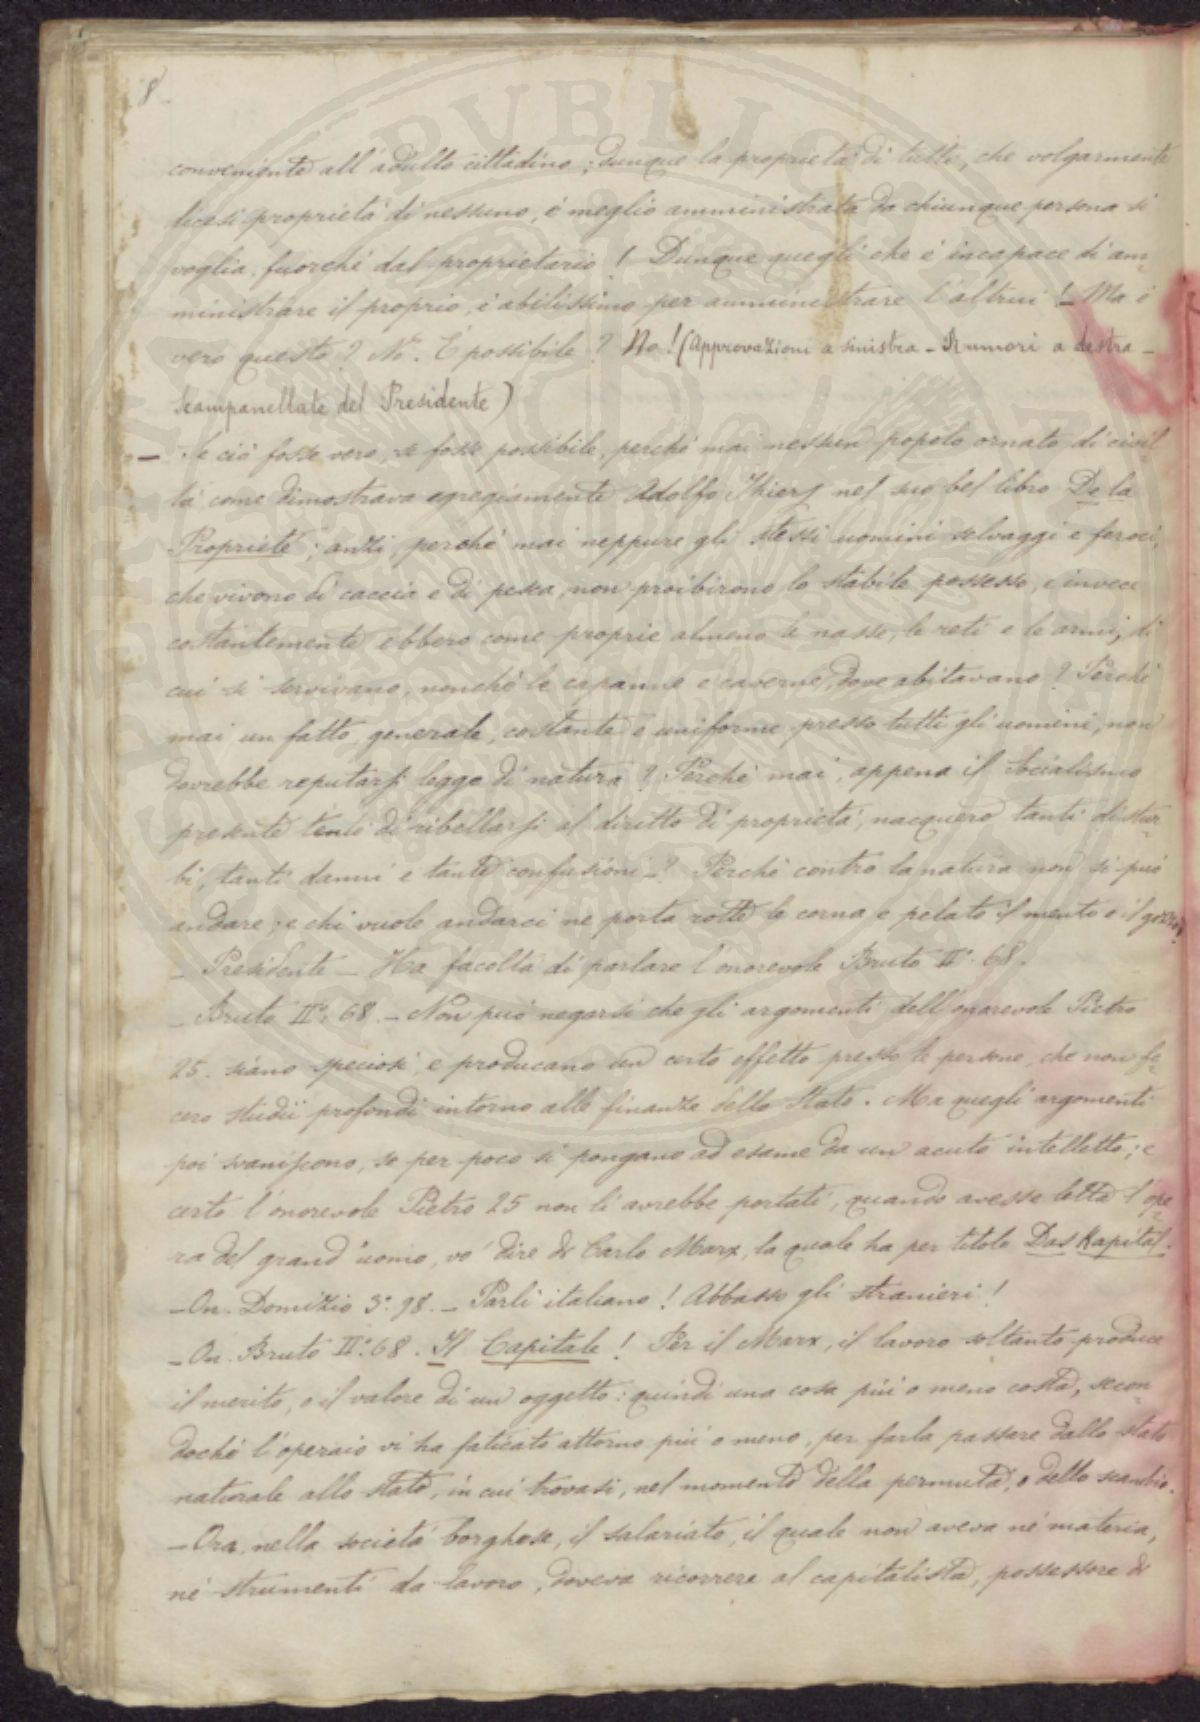 8
conveniente all'adulto cittadino; dunque la proprietà di tutti, che volgarmente
dicesi proprietà di nessuno, è meglio amministrata da chiunque persona si
voglia, fuorché dal proprietario! Dunque quegli che è incapace di am=
ministrare il proprio, è abilissimo per amministrare l'altrui! _ Ma è
vero questo? No. È possibile? No! (Approvazioni a sinistra - Rumori a destra -
Scampanellate del Presidente)
- Se ciò fosse vero, se fosse possibile, perché mai nessun popolo ornato di civil=
tà come dimostrava egregiamente Adolfo Thiers nel suo bel libro De la
Propriété; anzi, perché mai neppure gli stessi uomini selvaggi e feroci,
che vivono di caccia e di pesca, non proibirono lo stabile possesso, e invece
costantemente ebbero come proprie almeno le nasse, le reti e le armi, di
cui si servivano, nonché le capanne e caverne, dove abitavano? Perché
mai un fatto, generale, costante e uniforme presso tutti gli uomini, non
dovrebbe reputarsi legge di natura? Perché mai, appena il Socialismo
presente tentò di ribellarsi al diritto di proprietà, nacquero tanti distur=
bi, tanti danni e tante confusioni_? Perché contro la natura non si può
andare; e chi vuole andarci ne porta rotte le corna e pelato il mento e il gozzo.
_ Presidente _ Ha facoltà di parlare l'onorevole Bruto II.° 68.
_ Bruto II.° 68. _ Non può negarsi che gli argomenti dell'onorevole Pietro
25. siano speciosi, e producano un certo effetto presso le persone, che non fe=
cero studii profondi intorno alle finanze dello Stato. Ma quegli argomenti
poi svaniscono, se per poco si pongano ad esame da un acuto intelletto; e
certo l'onorevole Pietro 25 non li avrebbe portati, quando avesse letta l'ope=
ra del grand'uomo, vo' dire di Carlo Marx, la quale ha per titolo Das Kapital.
_ On. Domizio 3.° 98. _ Parli italiano! Abbasso gli stranieri!
_ On. Bruto II.° 68. Il Capitale! Per il Marx, il lavoro soltanto produce
il merito, o il valore di un oggetto: quindi una cosa più o meno costa, secon=
doché l'operaio vi ha faticato attorno più o meno, per farla passare dallo stato
naturale allo stato, in cui trovasi, nel momento della permuta, o dello scambio.
_ Ora, nella società borghese, il salariato, il quale non aveva né materia,
né strumenti da lavoro, doveva ricorrere al capitalista, possessore di